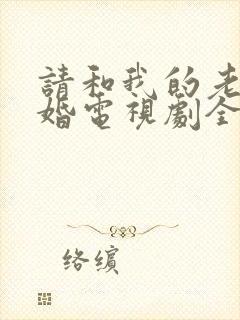 請和我的老
婚電視劇全
络缤